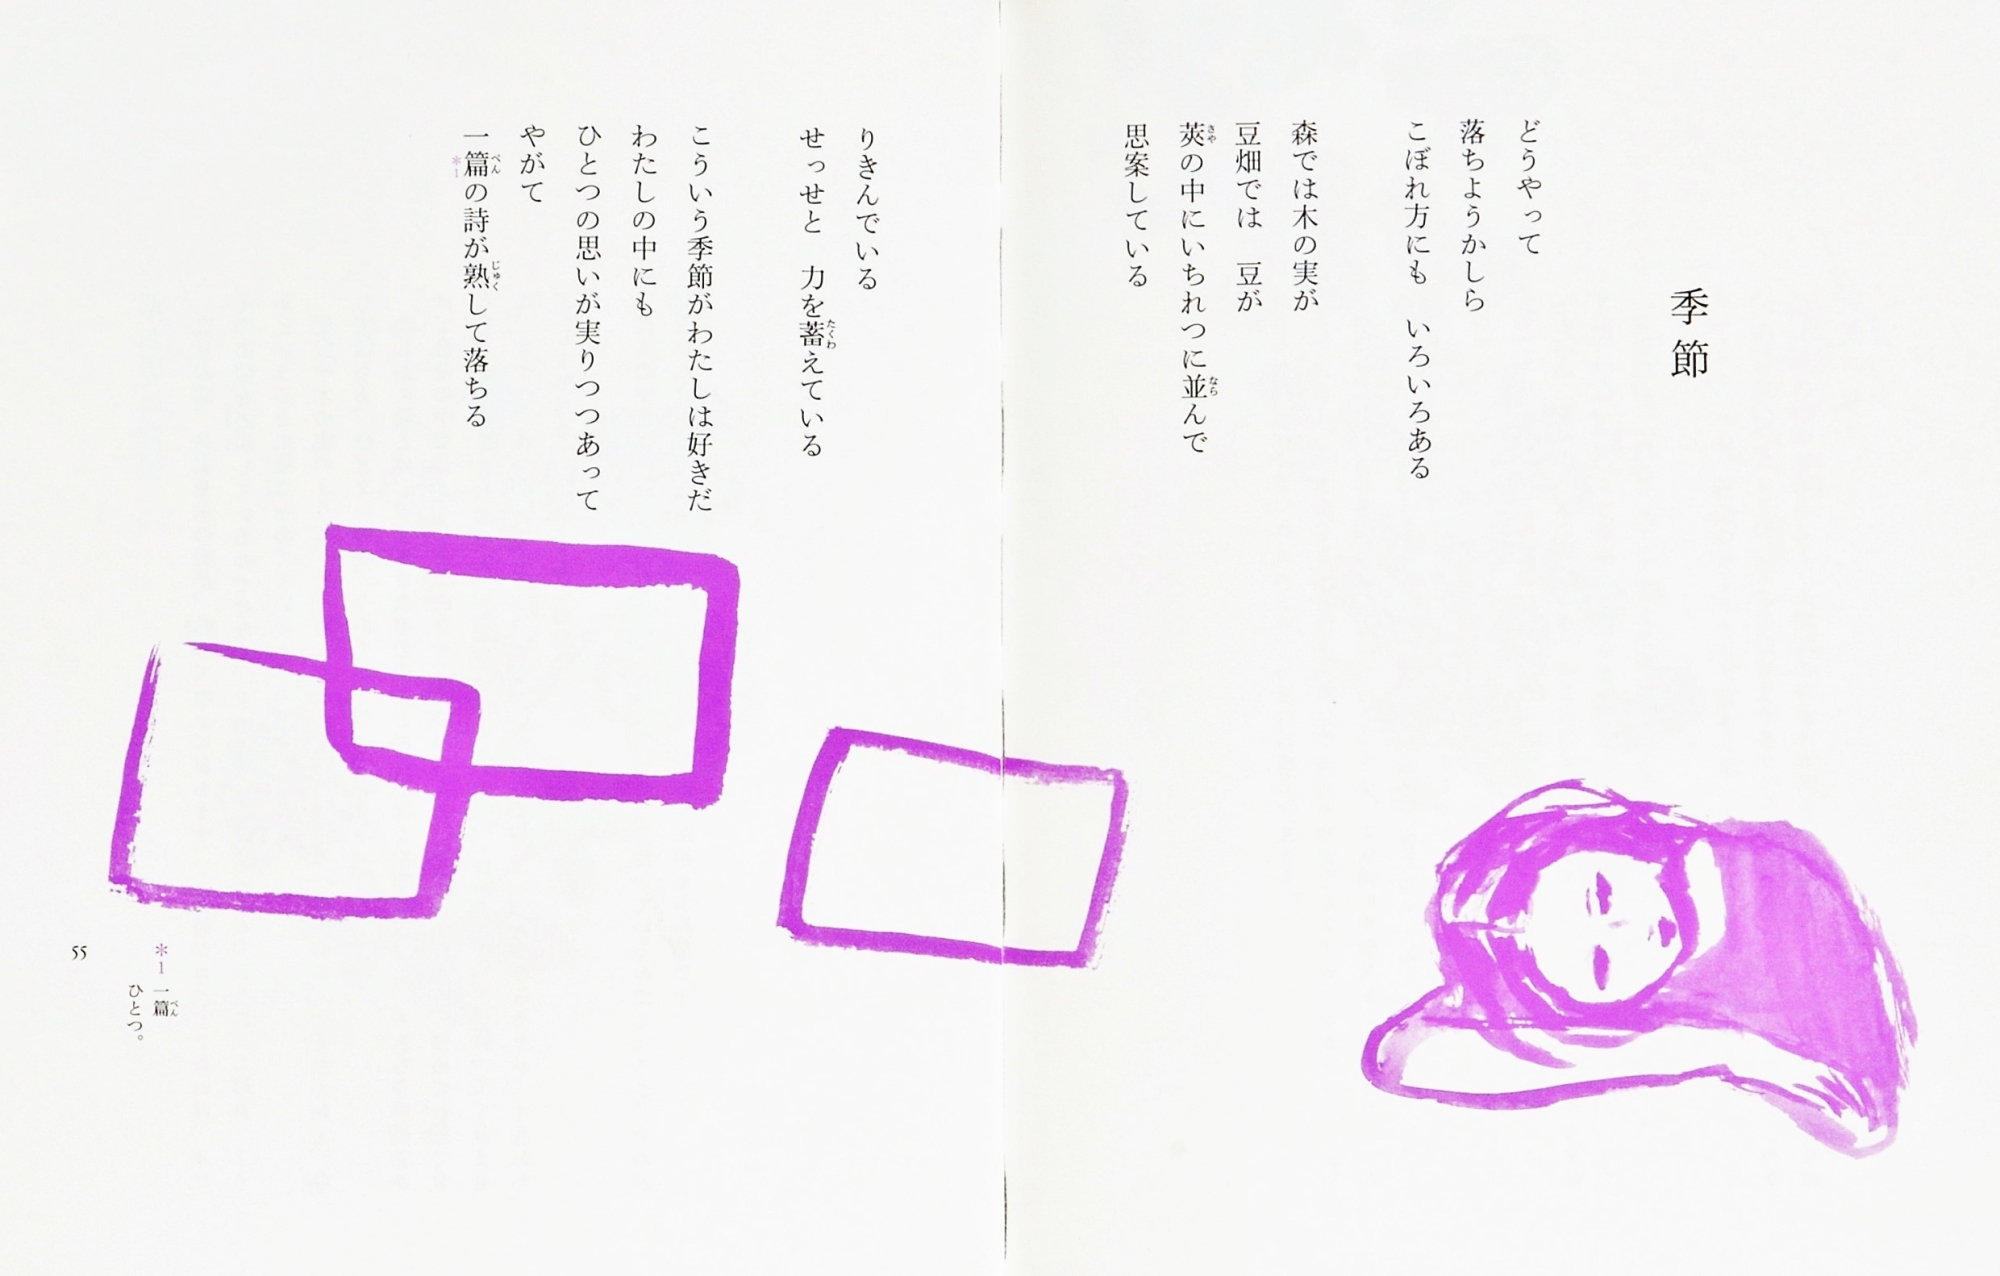 季節
どうやって
落ちようかしら
こぼれ方にも　いろいろある
森では木の実が
豆畑では　豆が
莢の中にいちれつに並んで
さや
なら
思案している
りきんでいる
せっせと　力を蓄えている
たくわ
こういう季節がわたしは好きだ
わたしの中にも
ひとつの思いが実りつつあって
やがて
一篇の詩が熟して落ちる
ぺん
じゅく
*1
*1 一篇
ぺん
ひとつ。
55